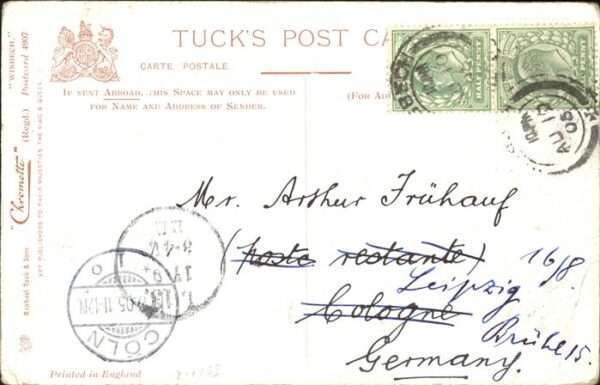 TUCK'S POST CA
CARTE POSTALE
IF SENT ABROAD, THIS SPACE MAY ONLY BE USED
FOR NAME AND ADDRESS OF SENDER.
(FOR AD
HALF PENNY
HALF PENNY
BECH
AU 17
05
"WISBECH." Postcard 4907
"Chromette" (Regd.)
Raphael Tuck & Sons
ART PUBLISHERS TO THEIR MAJESTIES THE KING & QUEEN.
Mr. Arthur Frühauf
(poste restante) 16/8.
Leipzig
Cologne
Brühl 15.
Germany.
CÖLN
05.11-12N
Printed in England